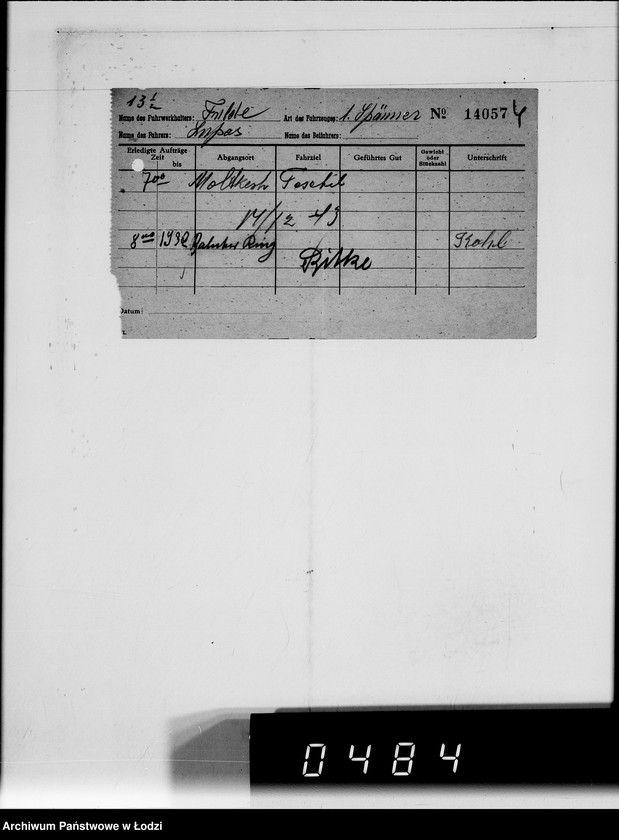 13 1/2
Name des Fuhrwerkhalters: Art des Fahrzeuges: 1. Spänner No 140574
Name des Fahrers: Name des Beifahrers:
Erledigte Aufträge Zeit bis Abgangsort Fahrziel Geführtes Gut Gewicht oder Stückzahl Unterschrift
7 00 Moltkestr
17/12 43
8 00 1930 Ring Kohl
Datum:
0484
Archiwum Państwowe w Łodzi